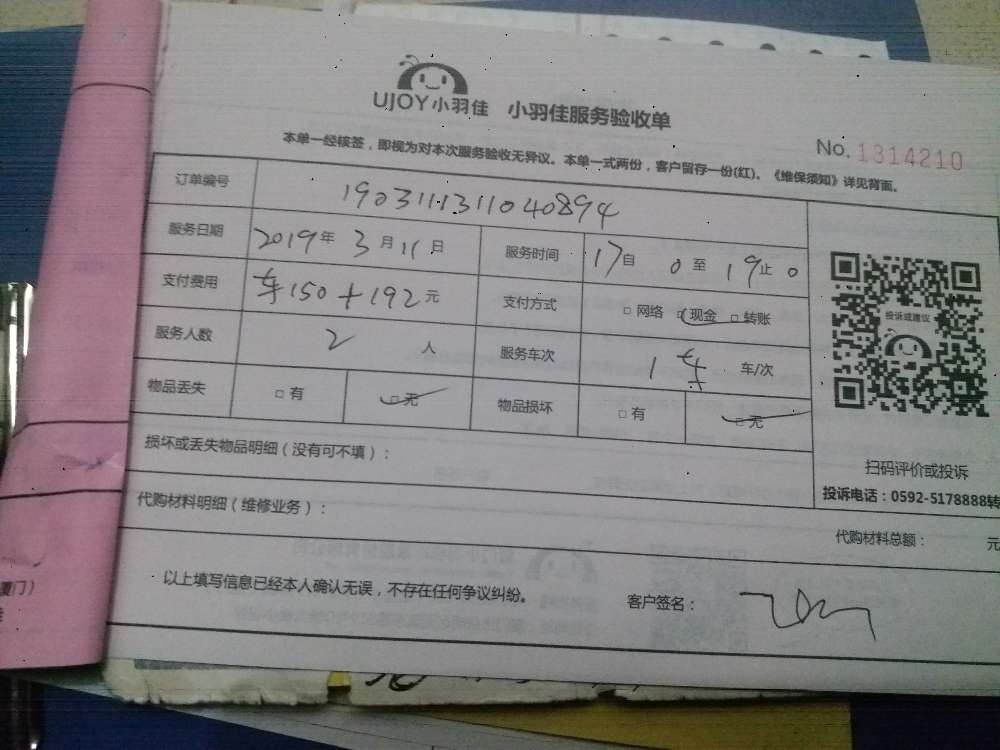 UJOY小羽佳 小羽佳服务验收单
No. 1314210
本单一经核签，即视为对本次服务验收无异议。本单一式两份，客户留存一份(红)。《维保须知》详见背面。
订单编号 1903111311040894
服务日期 2019年 3月11日 服务时间 17自 0至 19止 0
支付费用 车150+192元 支付方式 □网络 □现金 □转账
服务人数 2 人 服务车次 1车 车/次
物品丢失 □有 □无 物品损坏 □有 □无
投诉或建议
扫码评价或投诉
投诉电话：0592-5178888转
损坏或丢失物品明细（没有可不填）：
代购材料明细（维修业务）：
代购材料总额： 元
以上填写信息已经本人确认无误，不存在任何争议纠纷。 客户签名：
厦门）